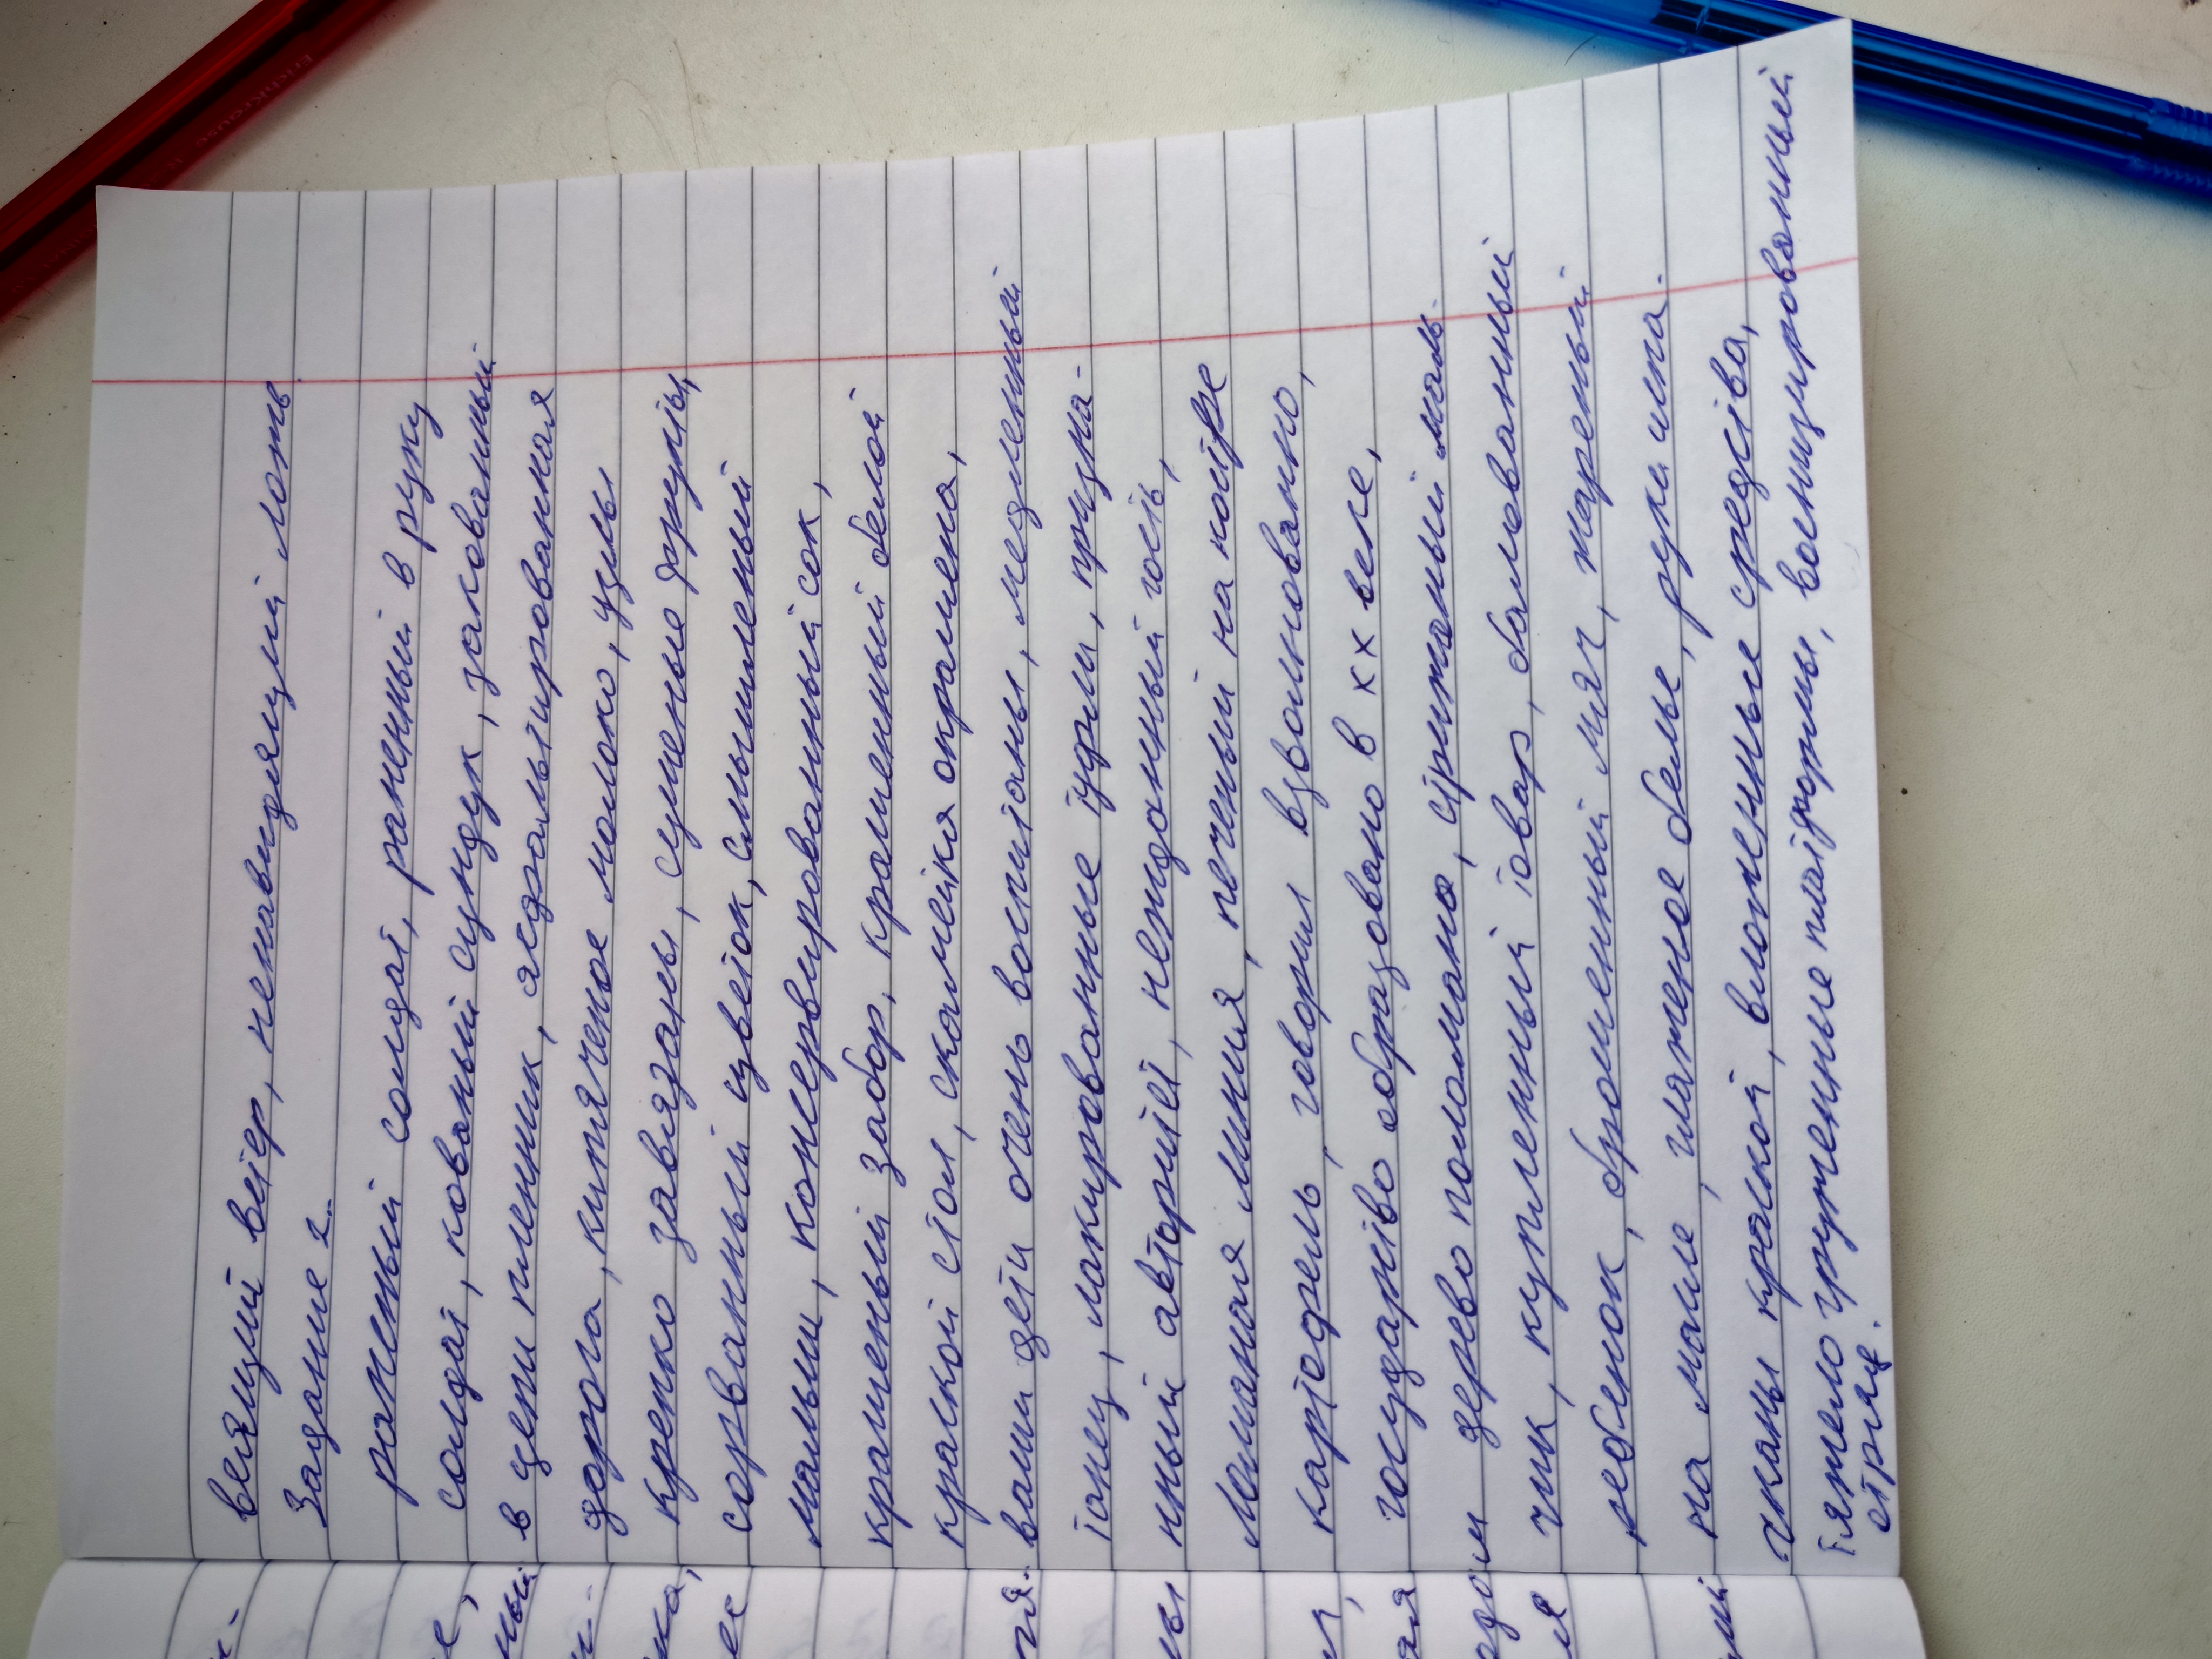 веящий ветер, ненавидящий ложь.
Задание 2.
раненый солдат, раненный в руку
солдат, кованый сундук, закованный
в цепи пленник, асфальтированная
дорога, кипяченое молоко, узлы
крепко завязаны, сушеные фрукты,
сорванный цветок, смышленый
малыш, консервированный сок,
крашеный забор, крашенный белой
краской стол, скамейка окрашена,
ваши дети очень воспитаны, медленный
танец, лакированные туфли, призна-
нный авторитет, нежданный гость,
Ломаная линия, печеный на костре
картофель, говорил взволнованно,
государство образовано в XX веке,
дерево поломано, стриженый маль-
чик, купленный товар, балованный
ребенок, брошенный мяч, жареный
на масле, глаженое белье, руки испа-
чканы краской, вложенные средства,
тяжело груженные платформы, военизированный
отряд.
Erichkrause